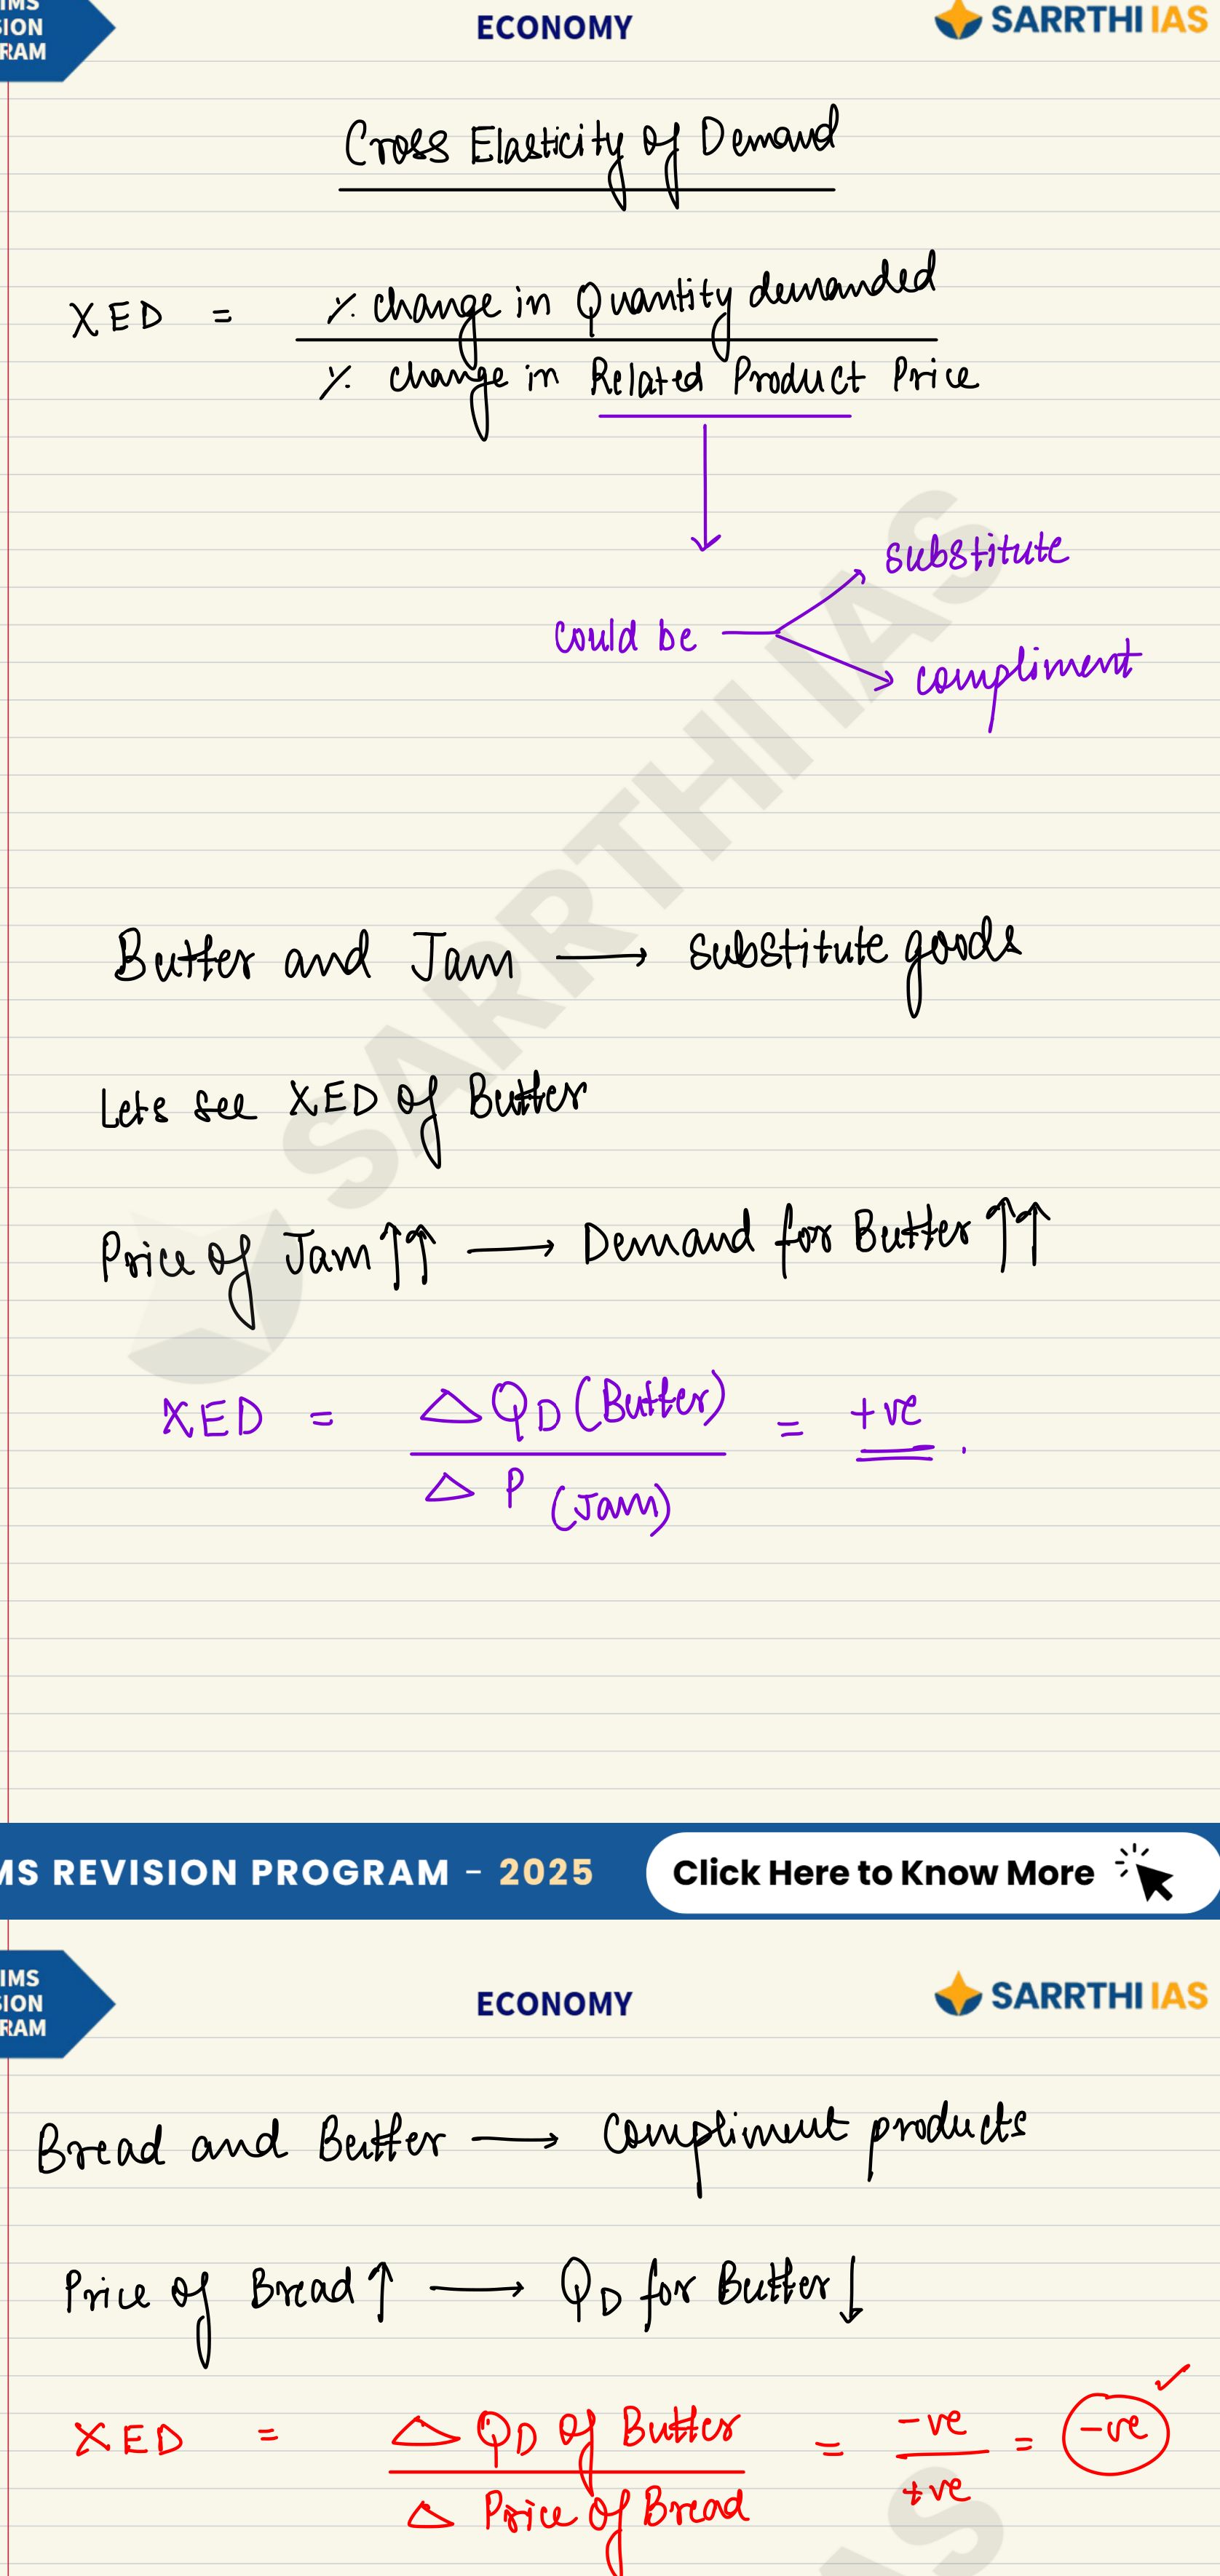 IMS
SION
RAM
ECONOMY
SARRTHI IAS
Cross Elasticity of Demand
XED = % change in Quantity demanded
% change in Related Product Price
substitute
could be
compliment
SARRTHI IAS
Butter and Jam → substitute goods
Lets see XED of Butter
Price of Jam ↑↑ → Demand for Butter ↑↑
XED = △ QD (Butter) = +ve.
△ P (Jam)
MS REVISION PROGRAM - 2025
Click Here to Know More
IMS
SION
RAM
ECONOMY
SARRTHI IAS
Bread and Butter → Compliment products
Price of Bread ↑ → QD for Butter ↓
XED = △ QD of Butter = -ve = -ve ✓
△ Price of Bread +ve
AS